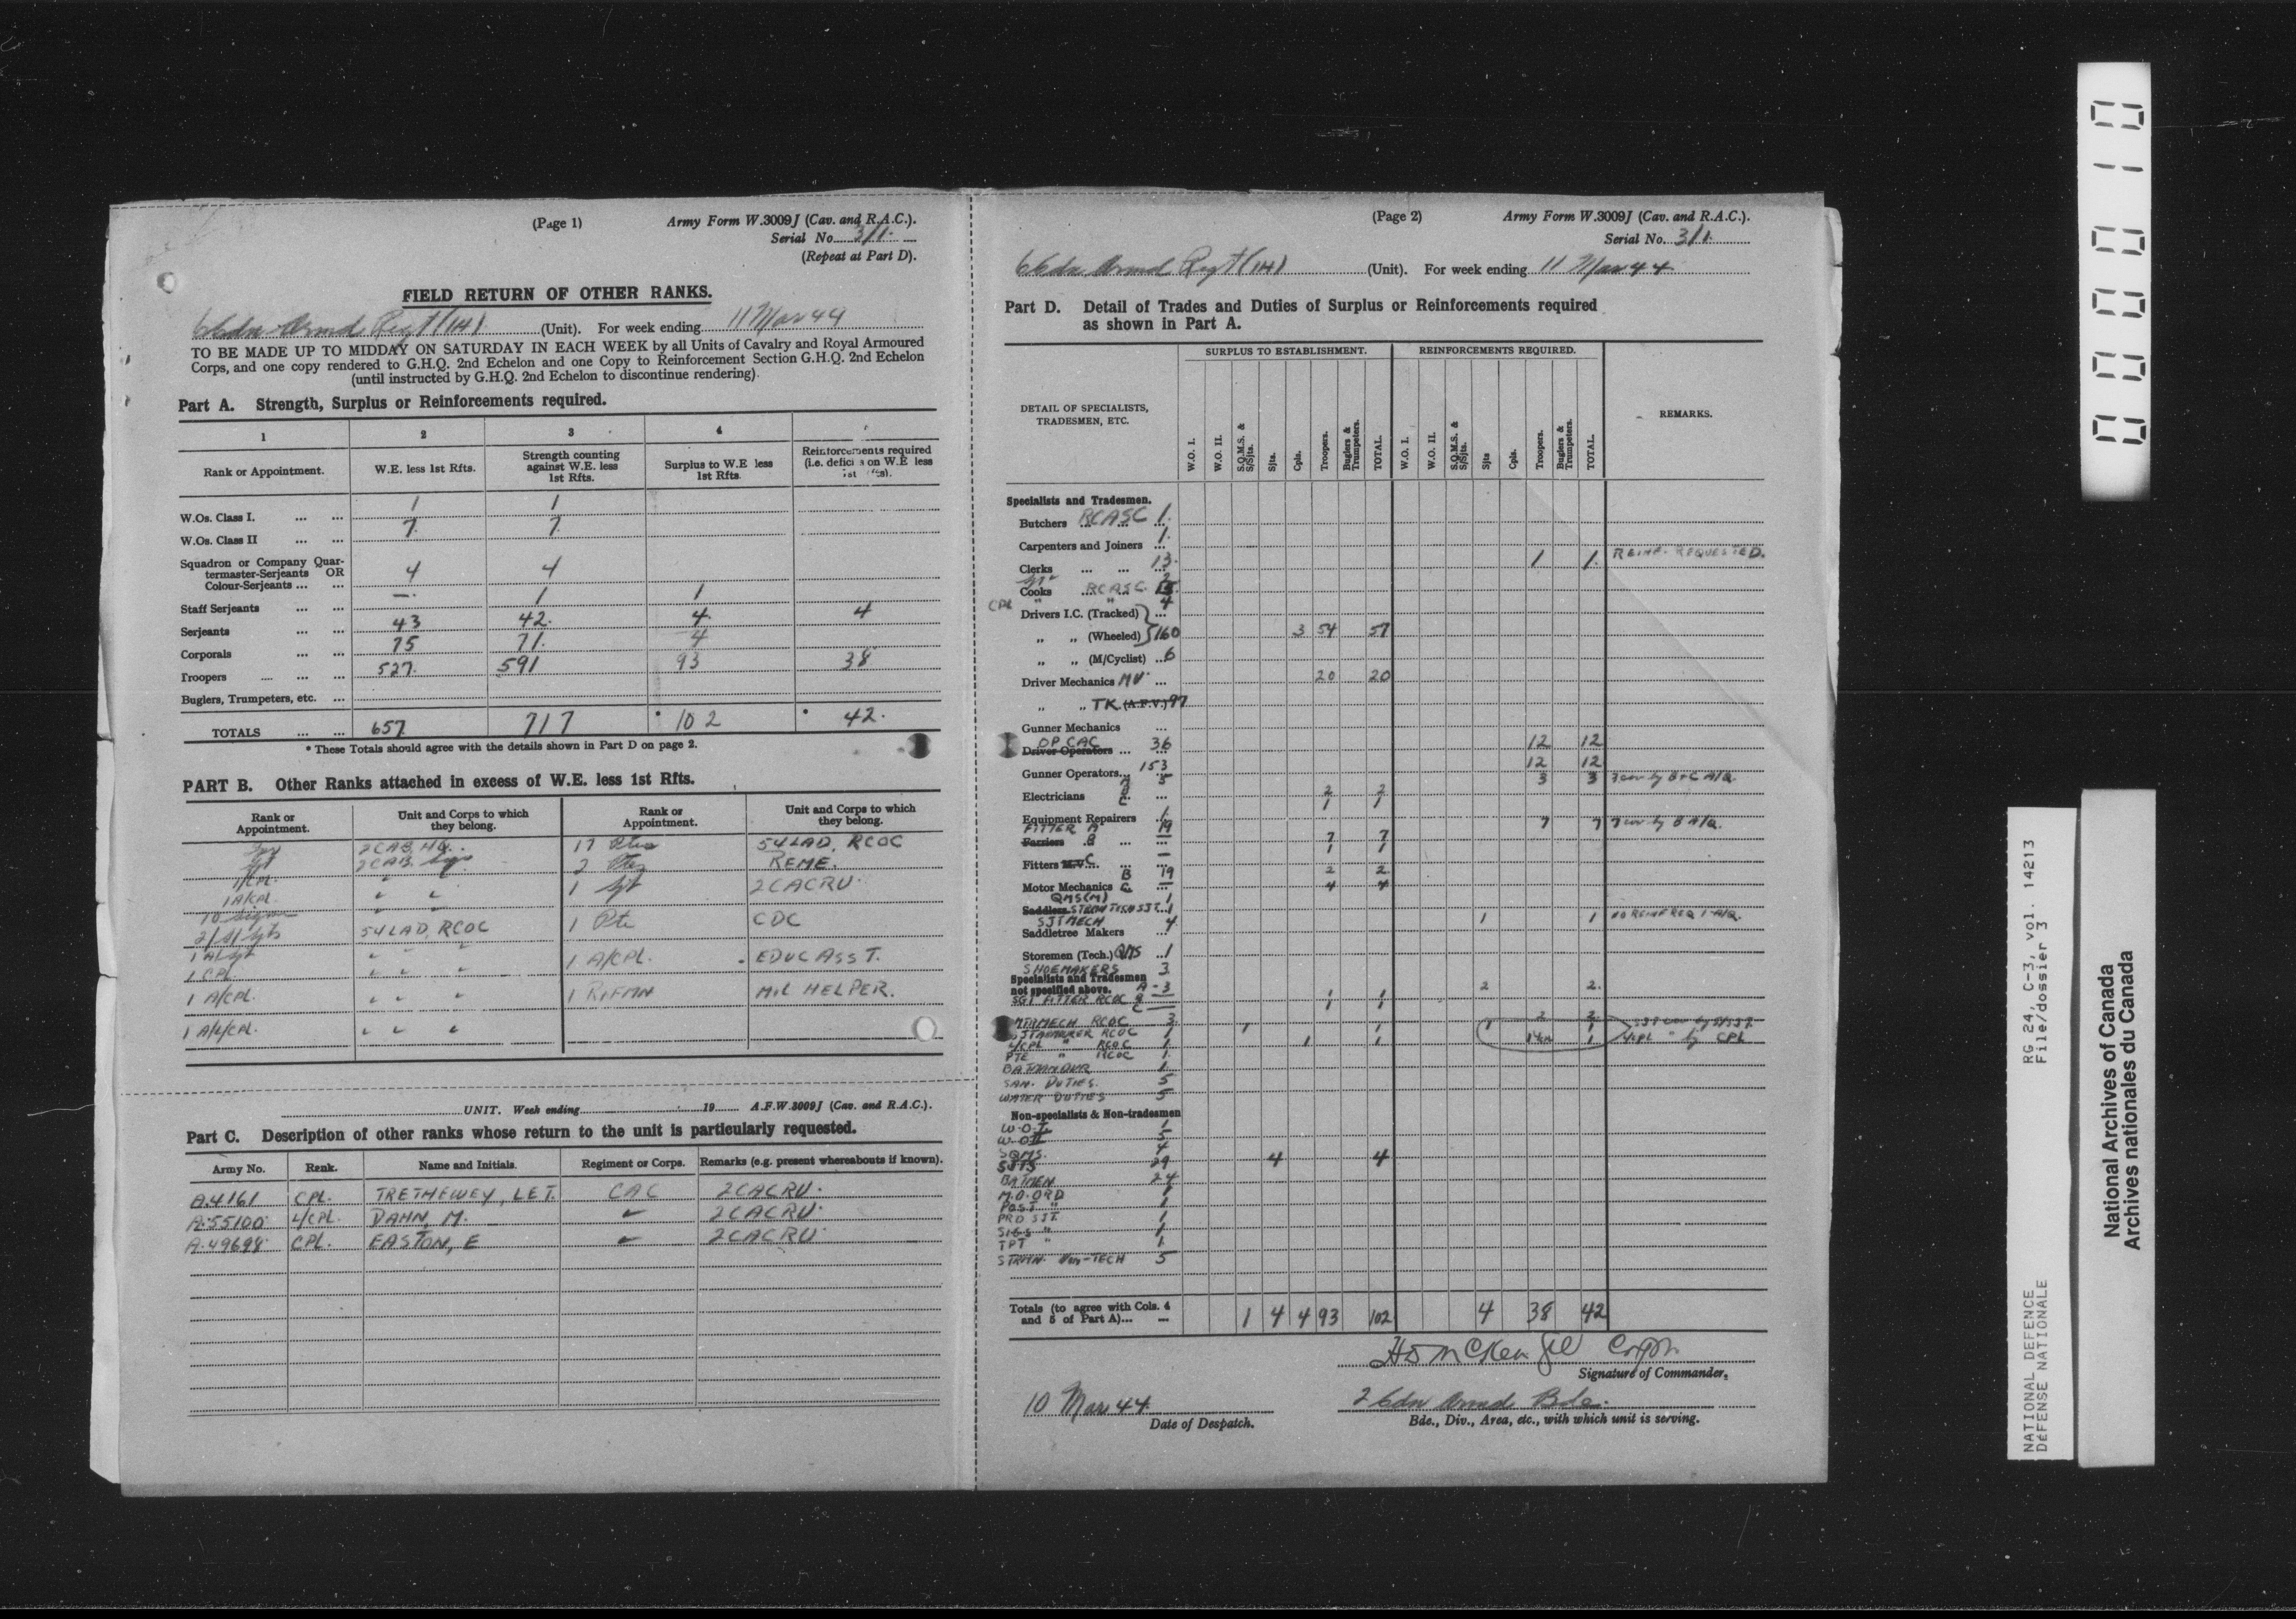 (Page 1) Army Form W.3009J (Cav. and R.A.C.).
Serial No. 3/1.
(Repeat at Part D).
FIELD RETURN OF OTHER RANKS.
6 Cdn Armd Regt (1H) (Unit). For week ending 11 Mar 44
TO BE MADE UP TO MIDDAY ON SATURDAY IN EACH WEEK by all Units of Cavalry and Royal Armoured
Corps, and one copy rendered to G.H.Q. 2nd Echelon and one Copy to Reinforcement Section G.H.Q. 2nd Echelon
(until instructed by G.H.Q. 2nd Echelon to discontinue rendering).
Part A. Strength, Surplus or Reinforcements required.
1 2 3 4
Rank or Appointment. W.E. less 1st Rfts. Strength counting against W.E. less 1st Rfts. Surplus to W.E less 1st Rfts. Reinforcements required (i.e. on W.E less
W.Os. Class I. ... ... 1 1
W.Os. Class II ... ... 7. 7.
Squadron or Company Quar-
termaster-Serjeants OR
Colour-Serjeants ... ... 4 4
Staff Serjeants ... ... — 1 1
Serjeants ... ... 43 42. 4. 4
Corporals ... ... 75 71. 4
Troopers ... ... ... 527. 591 93 38
Buglers, Trumpeters, etc. ...
TOTALS ... ... 657 717 * 102 * 42.
* These Totals should agree with the details shown in Part D on page 2.
PART B. Other Ranks attached in excess of W.E. less 1st Rfts.
Rank or Appointment. Unit and Corps to which they belong. Rank or Appointment. Unit and Corps to which they belong.
2 CAB HQ. 17 Ptes 54 LAD, RCOC
2 CAB Sigs 2 REME.
1/CPL. " " 1 Sgt 2 CACRU.
1 A/CPL. " "
10 Sigmn " " 1 Pte CDC
2/S/Sgts 54 LAD, RCOC
1 A/Sgt " " " 1 A/CPL. EDUC ASST.
1 CPL " " "
1 A/CPL. " " " 1 RIFMN MIL HELPER.
1 A/L/CPL. " " "
UNIT. Week ending 19 A.F.W.3009J (Cav. and R.A.C.).
Part C. Description of other ranks whose return to the unit is particularly requested.
Army No. Rank. Name and Initials. Regiment or Corps. Remarks (e.g. present whereabouts if known).
A.4161 CPL. TRETHEWEY, LET. CAC 2CACRU.
A.55100 L/CPL. DAHN, M. " 2CACRU.
A.49698 CPL. EASTON, E " 2CACRU.
(Page 2) Army Form W.3009J (Cav. and R.A.C.).
Serial No. 3/1.
6 Cdn Armd Regt (1H) (Unit). For week ending 11 Mar 44
Part D. Detail of Trades and Duties of Surplus or Reinforcements required
as shown in Part A.
SURPLUS TO ESTABLISHMENT. REINFORCEMENTS REQUIRED.
DETAIL OF SPECIALISTS, TRADESMEN, ETC. W.O. I. W.O. II. S.Q.M.S. & S/Sjts. Sjts. Cpls. Troopers. Buglers & Trumpeters. TOTAL. W.O. I. W.O. II. S.Q.M.S. & S/Sjts. Sjts Cpls. Troopers. Buglers & Trumpeters. TOTAL. REMARKS.
Specialists and Tradesmen.
Butchers RCASC 1.
Carpenters and Joiners ... 1.
Clerks ... ... 13. 1 1. REINF. REQUESTED.
Cooks RCASC
CPL " " 4
Drivers I.C. (Tracked)
„ „ (Wheeled) 160 3 54 57
„ „ (M/Cyclist) ... 6
Driver Mechanics MV ... 20 20
„ „ TK (A.F.V.) 97
Gunner Mechanics ...
OP CAC 36 12 12
Driver Operators ...
Gunner Operators... 153 12 12
A 5 3 3 3 cov by B+C A/Q.
Electricians B ... 2 2
C 1 1
Equipment Repairers 1
FITTER A 19 7 7 7 cov by B A/Q.
Farriers B ... 7 7
1 1
Fitters M.V. C ... —
B 19 2 2
Motor Mechanics C ... 4 4
QMS(M) 1
Saddlers STRMN TECH SJT. 1 1 1 NO REINF REQ 1-A/Q.
SJT MECH 4
Saddletree Makers ...
Storemen (Tech.) QMS .1
SHOEMAKERS 3
Specialists and Tradesmen
not specified above. A - 3 2 2.
SGT FITTER RCOC B 1 1
C 1 1
MTRMECH RCOC 3 2 2
SJT ARMOURER RCOC 1 1 1 1 1 SJT cov by S/SJT.
L/CPL " RCOC 1 1 1 1 L/CPL " by CPL
PTE " RCOC 1.
BATMAN DVR 1
SAN. DUTIES. 5
WATER DUTIES 5
Non-specialists & Non-tradesmen
W.O.I. 1
W.O.II 5
SQMS. 4
SJTS 29 4 4
BATMEN 24
M.O. ORD 1
POST " 1
PRO SJT. 1
SIGS " 1
TPT " 1
STRMN. Non-TECH 5
Totals (to agree with Cols. 4
and 5 of Part A)... 1 4 4 93 102 4 38 42
Signature of Commander.
10 Mar 44 2 Cdn Armd Bde.
Date of Despatch. Bde., Div., Area, etc., with which unit is serving.
000010
RG 24, C-3, vol. 14213
File/dossier 3
NATIONAL DEFENCE
DÉFENSE NATIONALE
National Archives of Canada
Archives nationales du Canada